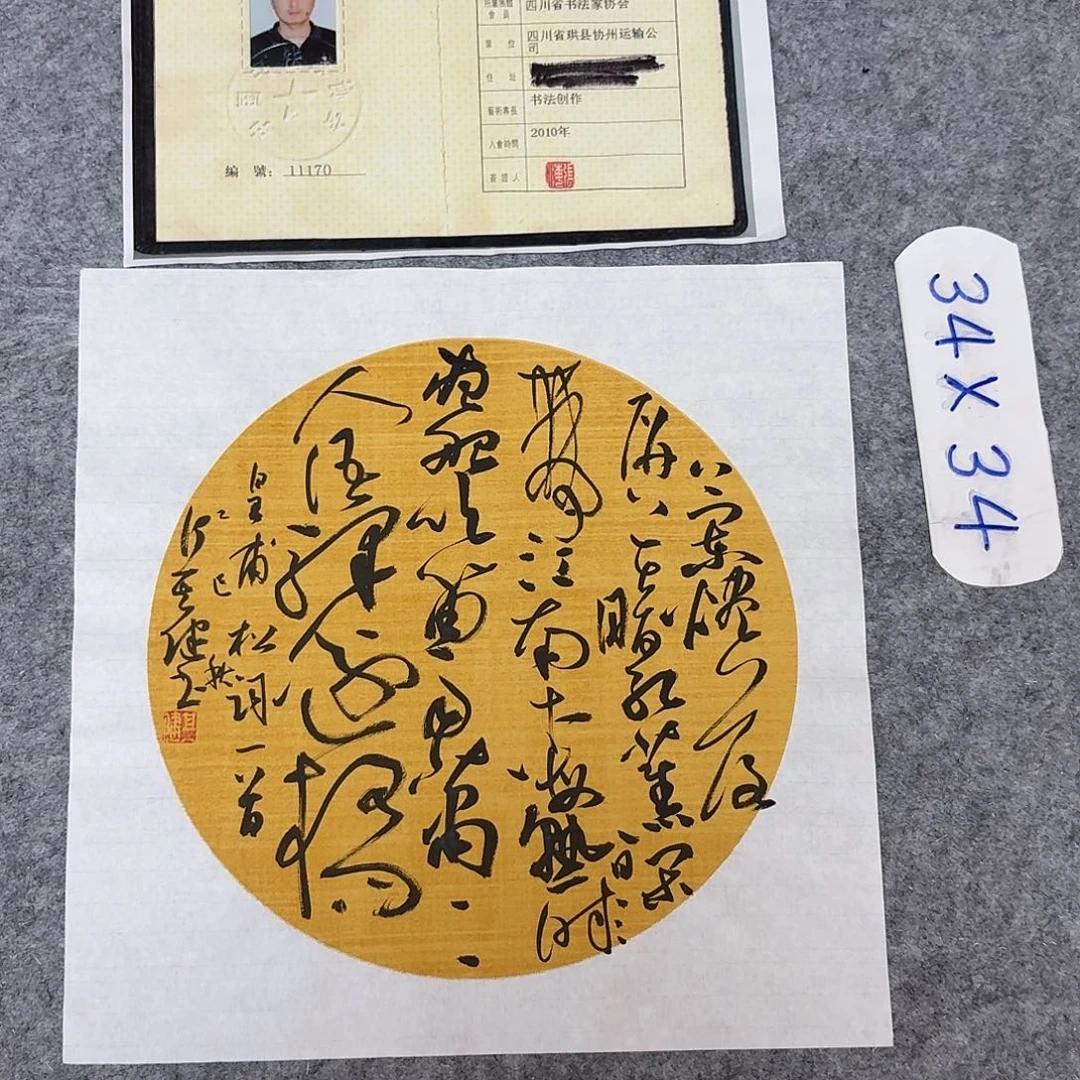 会員 四川省书法家协会
單位 四川省珙县协州运输公
司
住址
藝術專長 书法创作
入會時間 2010年
簽證人
編號：11170
34×34
兰烬落
屏上暗红蕉闲
梦江南梅熟日
夜船吹笛雨萧萧
人语驿边桥
皇甫松词一首
乙巳秋
健书